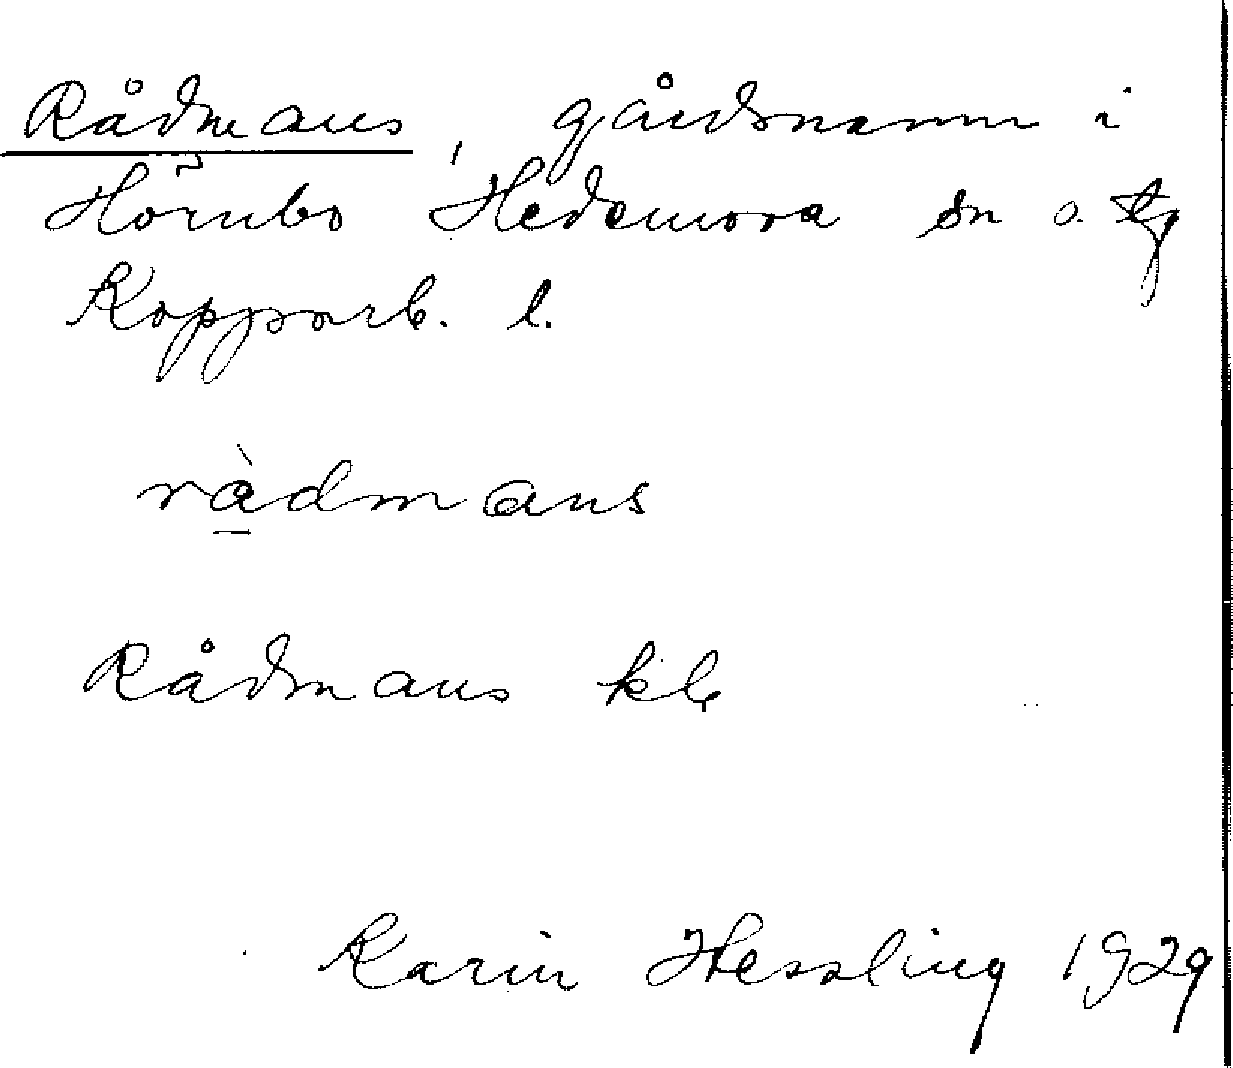 Rådmans, gårdsnamn i
Hörnbo Hedemora sn o. tg
Kopparb. l.
ràdmans
Rådmans klg
Karin Hessling 1929